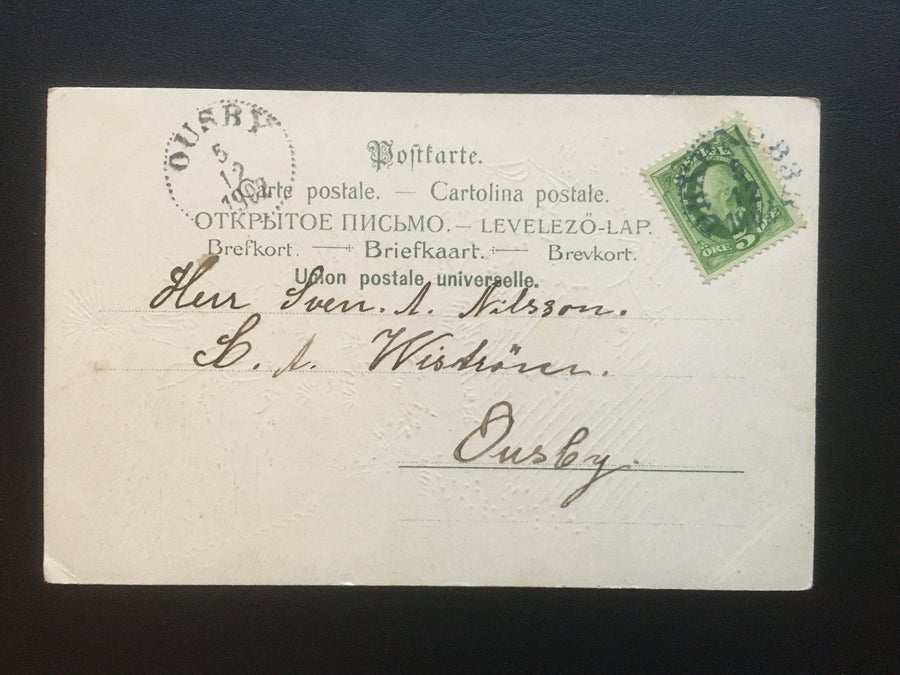 OUSBY
5
12
Postkarte.
Carte postale. — Cartolina postale.
ОТКРЫТОЕ ПИСЬМО. — LEVELEZŐ-LAP.
Brefkort. — Briefkaart. — Brevkort.
Union postale universelle.
Herr Sven. A. Nilsson.
A. Wiström.
Ousby.
5
ÖRE